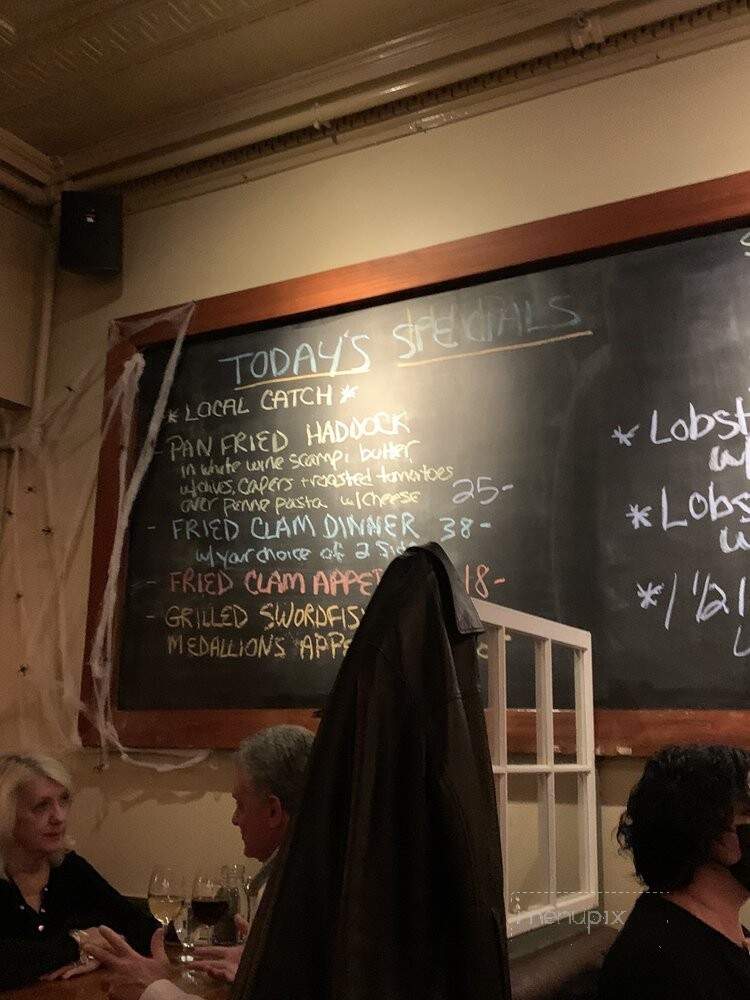 TODAY'S SPECIALS
* LOCAL CATCH *
- PAN FRIED HADDOCK
in white wine scampi butter
w/chives, capers + roasted tomatoes
over penne pasta w/cheese 25-
- FRIED CLAM DINNER 38-
w/your choice of 2
- FRIED CLAM 18-
- GRILLED
MEDALLIONS
*
*
* 1 1/2
menupix